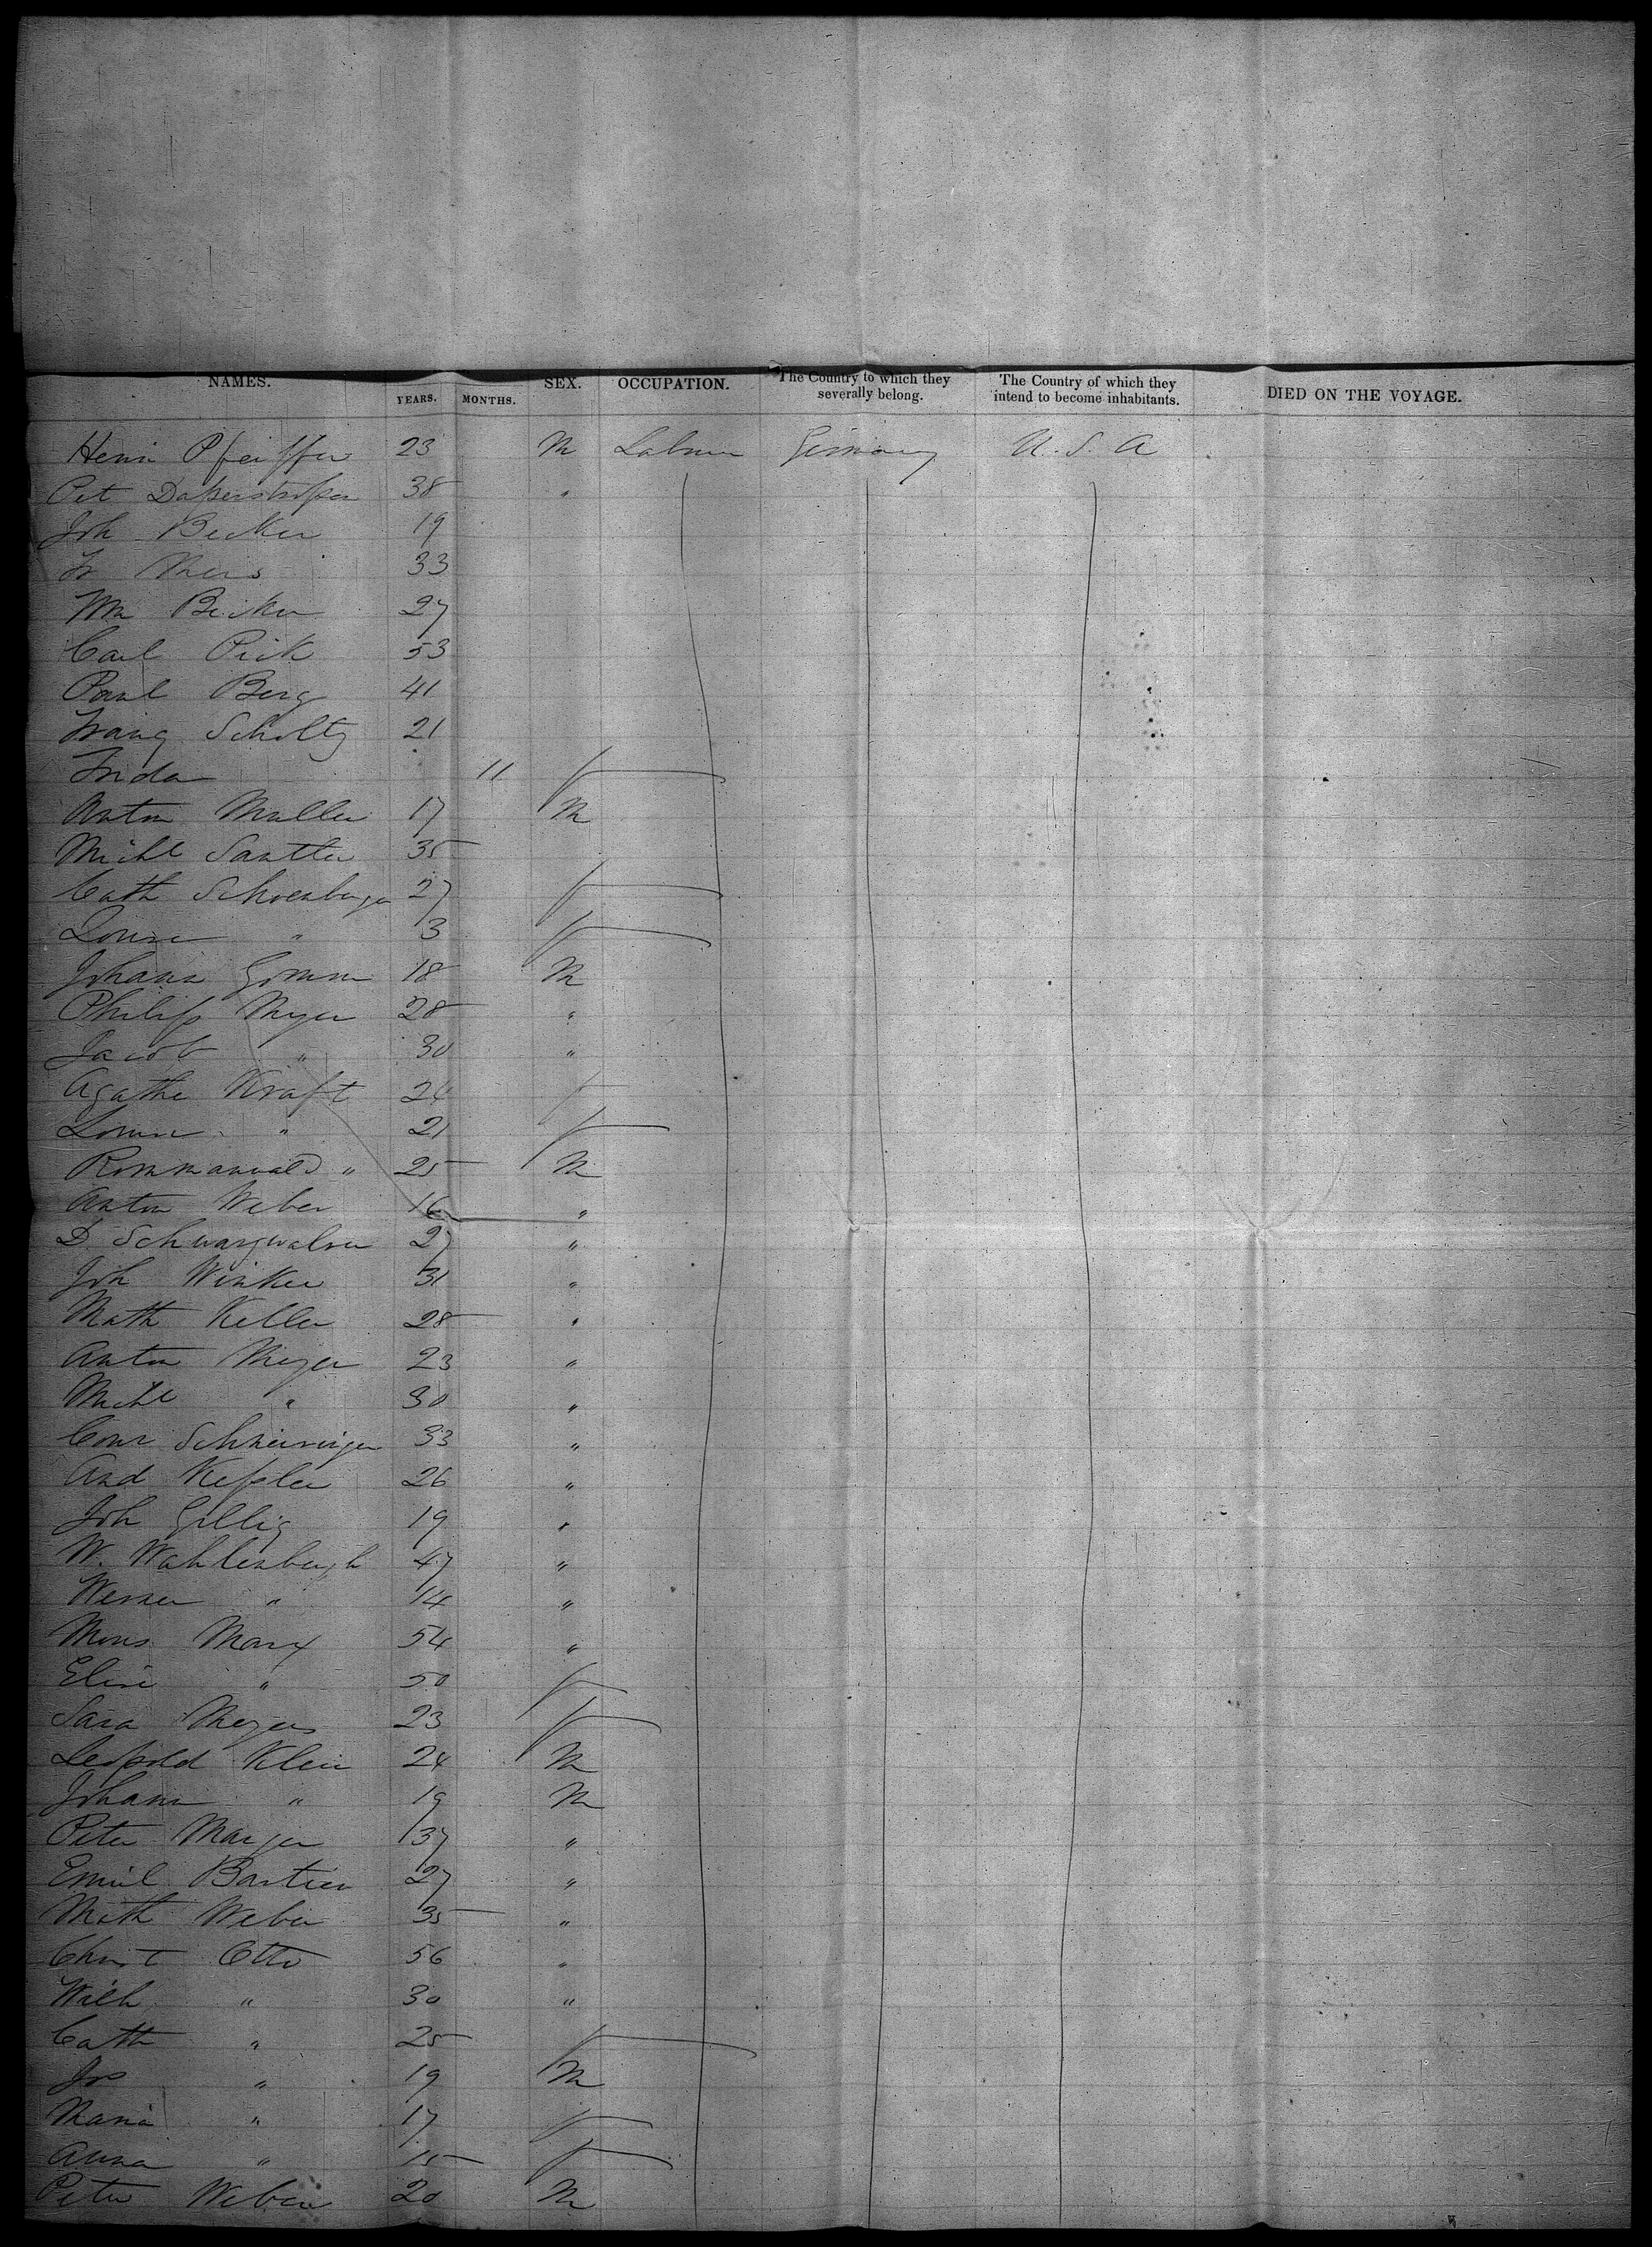 NAMES. YEARS. MONTHS. SEX. OCCUPATION. The Country to which they severally belong. The Country of which they intend to become inhabitants. DIED ON THE VOYAGE.
Henri Pfeiffer 23 M Labourer Germany U. S. A
Pet 38 "
Joh Becker 19
Fr Theis 33
Wm Becker 27
Carl Pick 53
Paul Berg 41
Franz Scholtz 21
Frida 11 f
Anton Muller 17 M
Michl Sautter 35
Cath Schoenberger 27 f
Louise " 3 f
Johann 18 M
Philipp Myer 28 "
Jacob " 30 "
Agathe Kraft 24 f
Louise " 21 f
" 25 M
Anton Weber 16 "
D. Schwarzwalder 27 "
Joh Winker 31 "
Math Keller 28 "
Anton Meyer 23 "
Michl " 30 "
33 "
And Keßler 26 "
Joh Gillig 19 "
W. Wahlenbergh 47 "
Werner " 14 "
Mons Marx 54 "
Elise " 50 f
Sara Meyers 23 f
Leopold Klein 24 M
Johann " 19 M
Peter 37 "
Emil Bastien 27 "
Math Weber 35 "
Christ Otto 56 "
Wilh " 30 "
Cath " 25 f
Jos " 19 M
Maria " 17 f
Anna " 15 f
Peter Weber 20 M